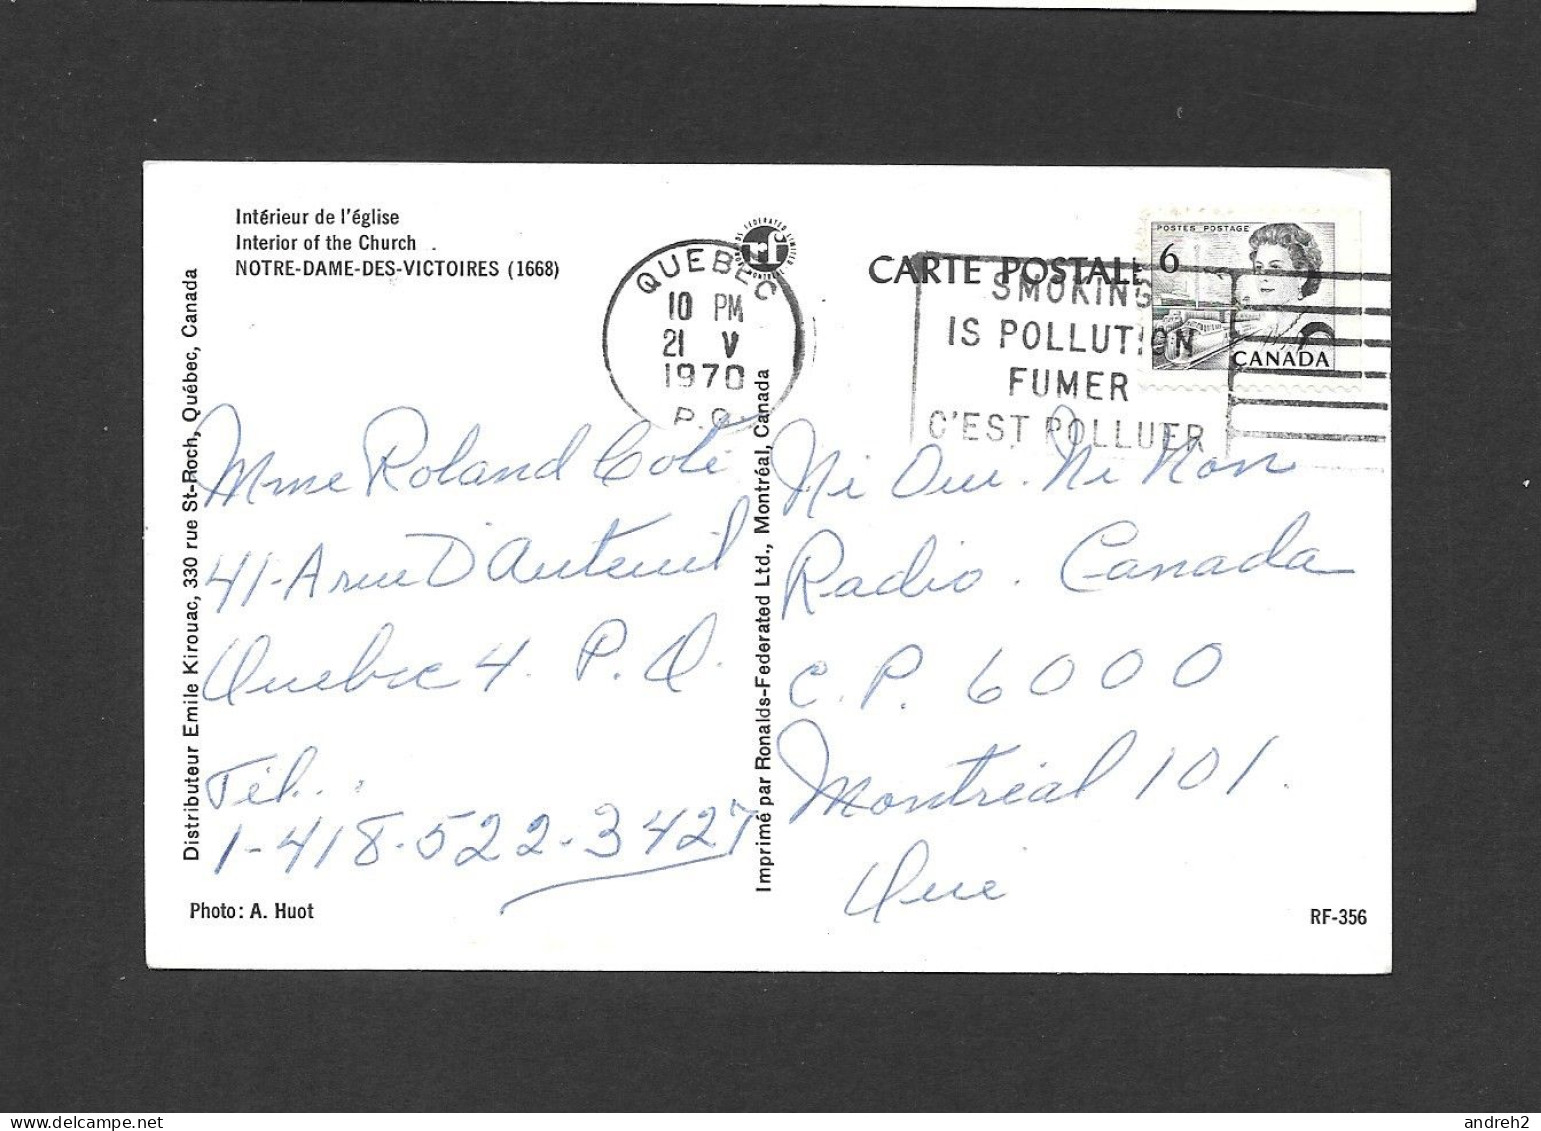 Intérieur de l'église
Interior of the Church
NOTRE-DAME-DES-VICTOIRES (1668)
CARTE POSTALE
QUEBEC
10 PM
21 V
1970
P.Q.
SMOKING
IS POLLUTION
FUMER
C'EST POLLUER
POSTES POSTAGE
6
CANADA
Mme Roland Coté
41-A rue D'Auteuil
Quebec 4. P.Q.
Tél.:
1-418-522-3427
Distributeur Emile Kirouac, 330 rue St-Roch, Québec, Canada
Imprimé par Ronalds-Federated Ltd., Montréal, Canada
Ni Oui. Ni Non
Radio. Canada
C.P. 6000
Montréal 101.
Que
Photo: A. Huot
RF-356
andreh2